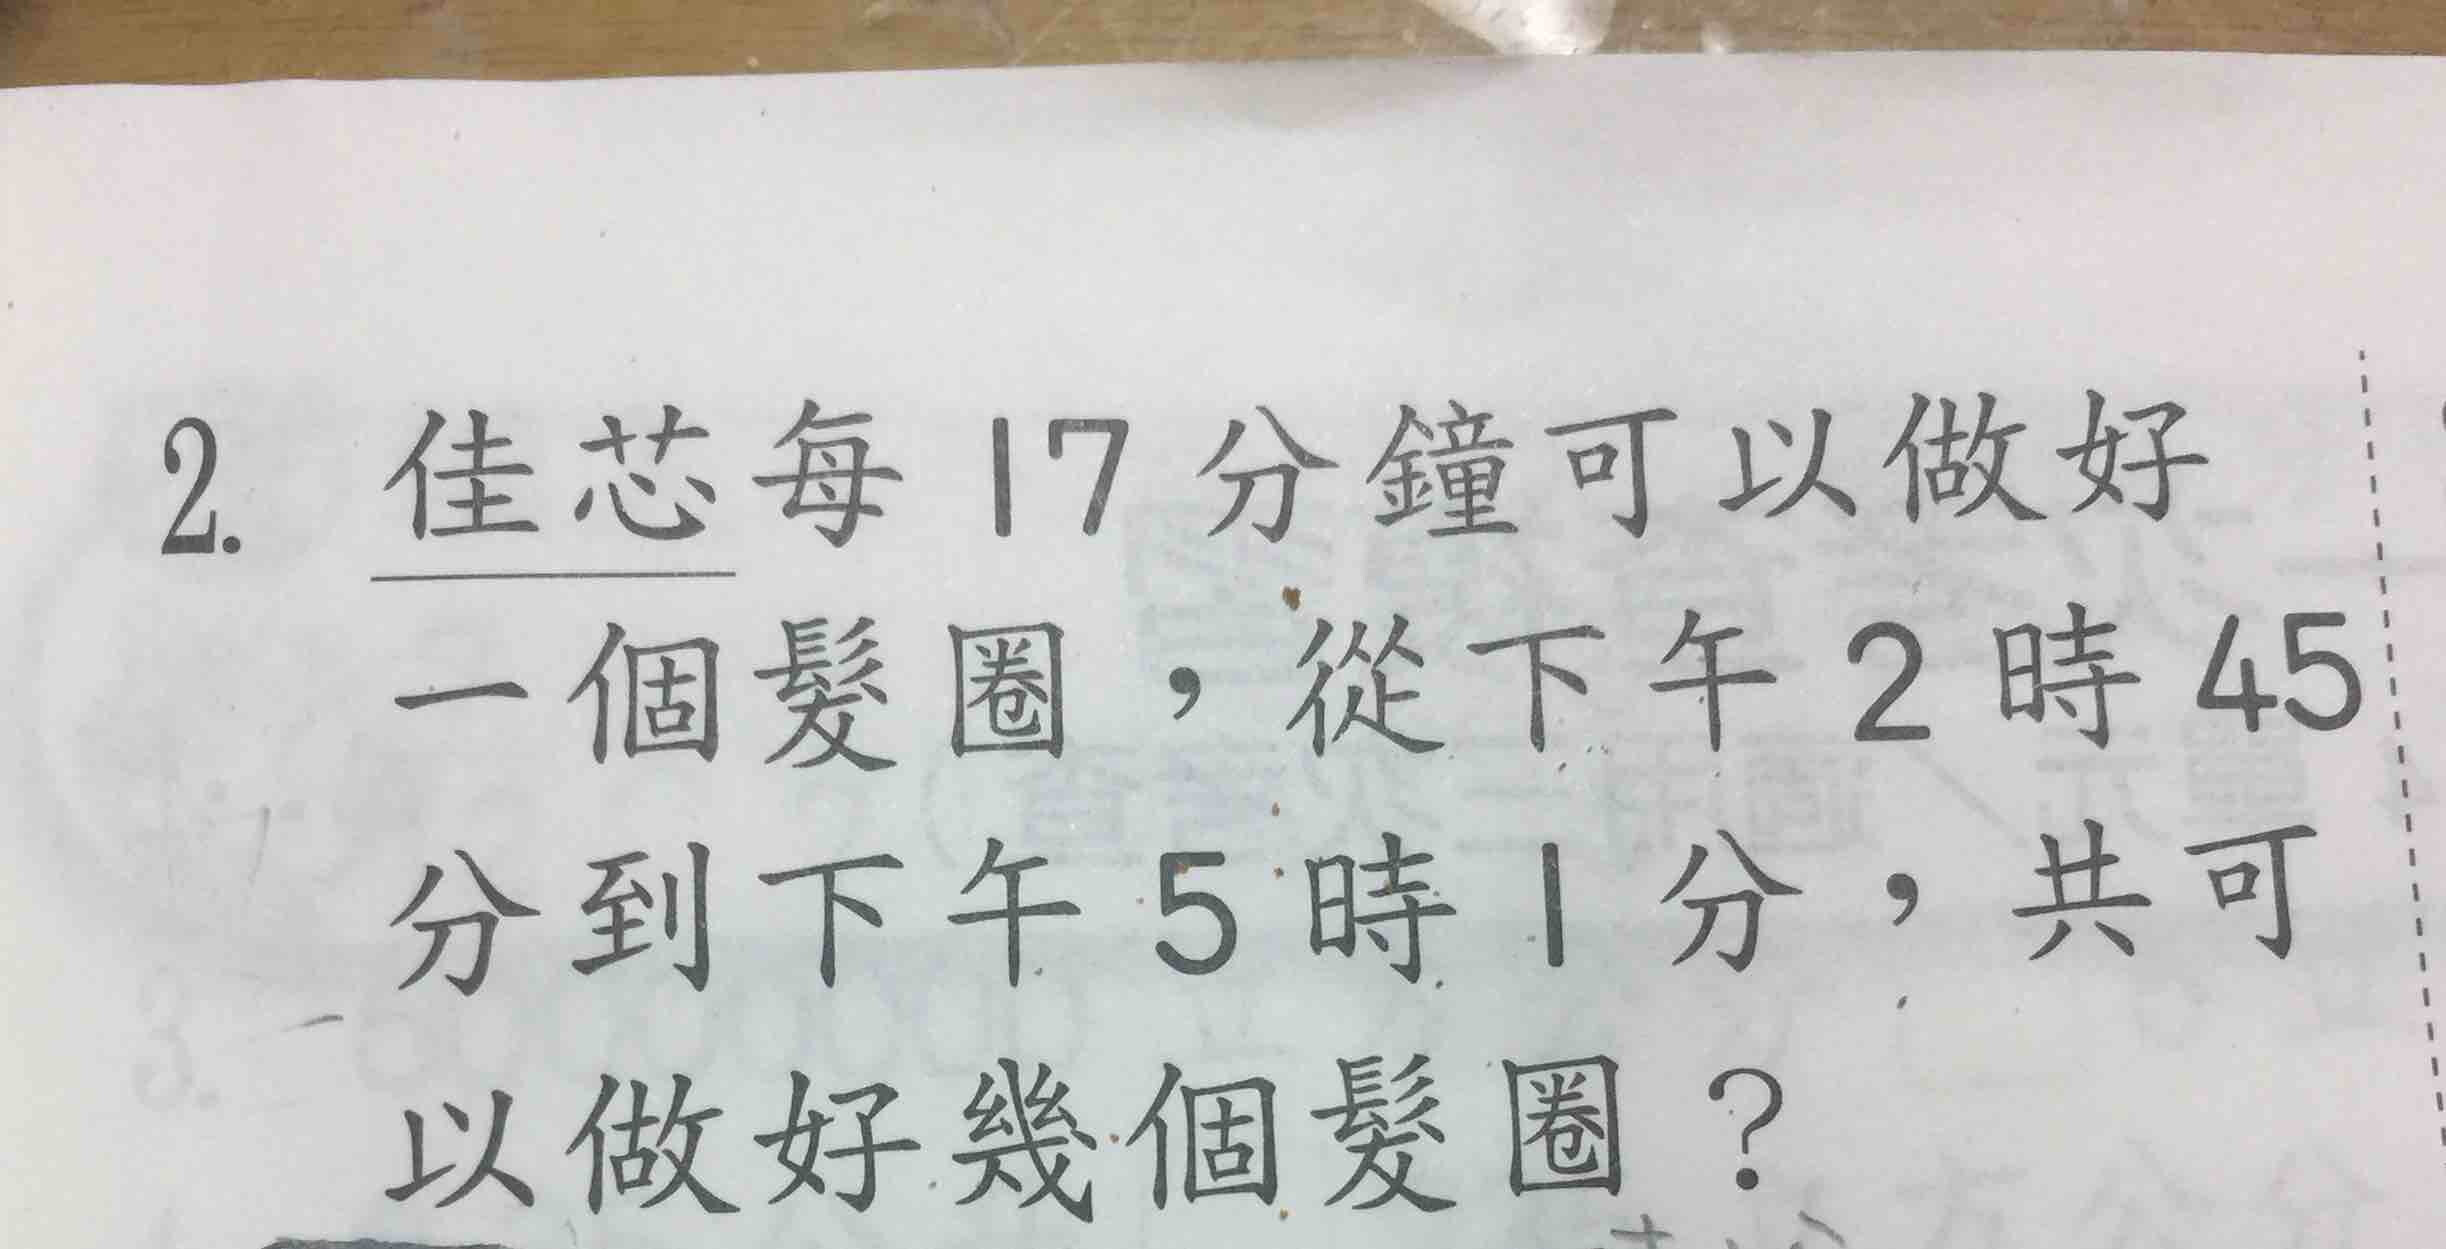 2. 佳芯每17分鐘可以做好
一個髮圈，從下午2時45
分到下午5時1分，共可
以做好幾個髮圈？